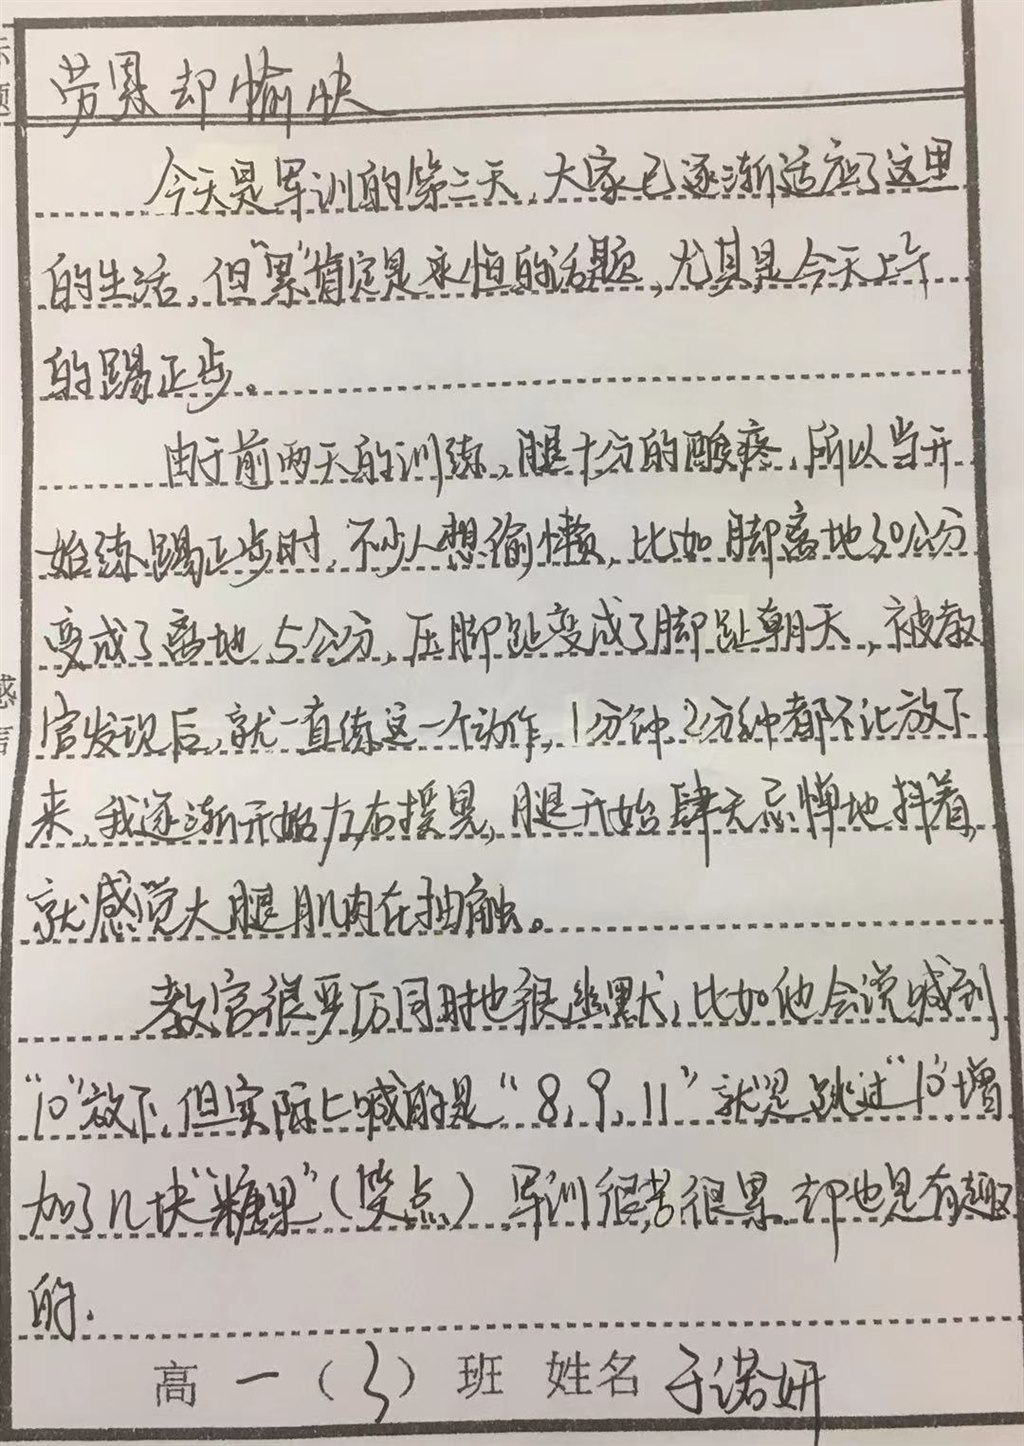 标题
劳累却愉快
今天是军训的第三天,大家已逐渐适应了这里
的生活,但"累"肯定是永恒的话题,尤其是今天上午
的踢正步。
由于前两天的训练,腿十分的酸疼,所以当开
始练踢正步时,不少人想偷懒,比如脚离地30公分
变成了离地5公分,压脚趾变成了脚趾朝天,被教
官发现后,就一直练这一个动作,1分钟、2分钟都不让放下
来,我逐渐开始左右摇晃,腿开始肆无忌惮地抖着,
就感觉大腿肌肉在抽触。
感言
教官很严厉同时也很幽默,比如他会说喊到
"10"放下,但实际上喊的是"8,9,11"就是跳过"10"增
加了几块"糖果"(笑点)军训很苦很累,却也是有趣
的.
高一(3)班 姓名 于诺妍